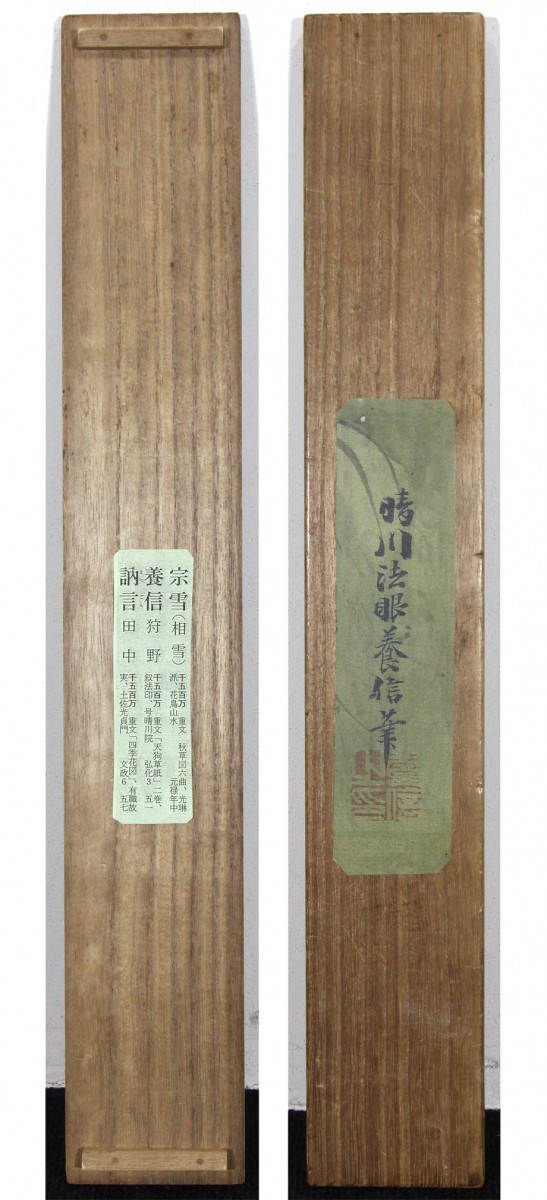 宗雪(相雪)千五百万 重文 秋草図六曲、光琳
派、花鳥山水 元禄年中
養信 狩野 千五百万 重文「天狗草紙」二巻、
叙法印、号晴川院 弘化3 五一
訥言 田中 千五百万 重文「四季花図」、有職故
実、土佐光貞門 文政6 五七
晴川法眼養信筆